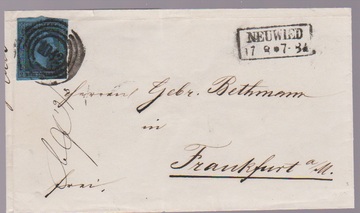 NEUWIED
Herren Gebr. Bethmann
in
Frankfurt a/M.
frei.